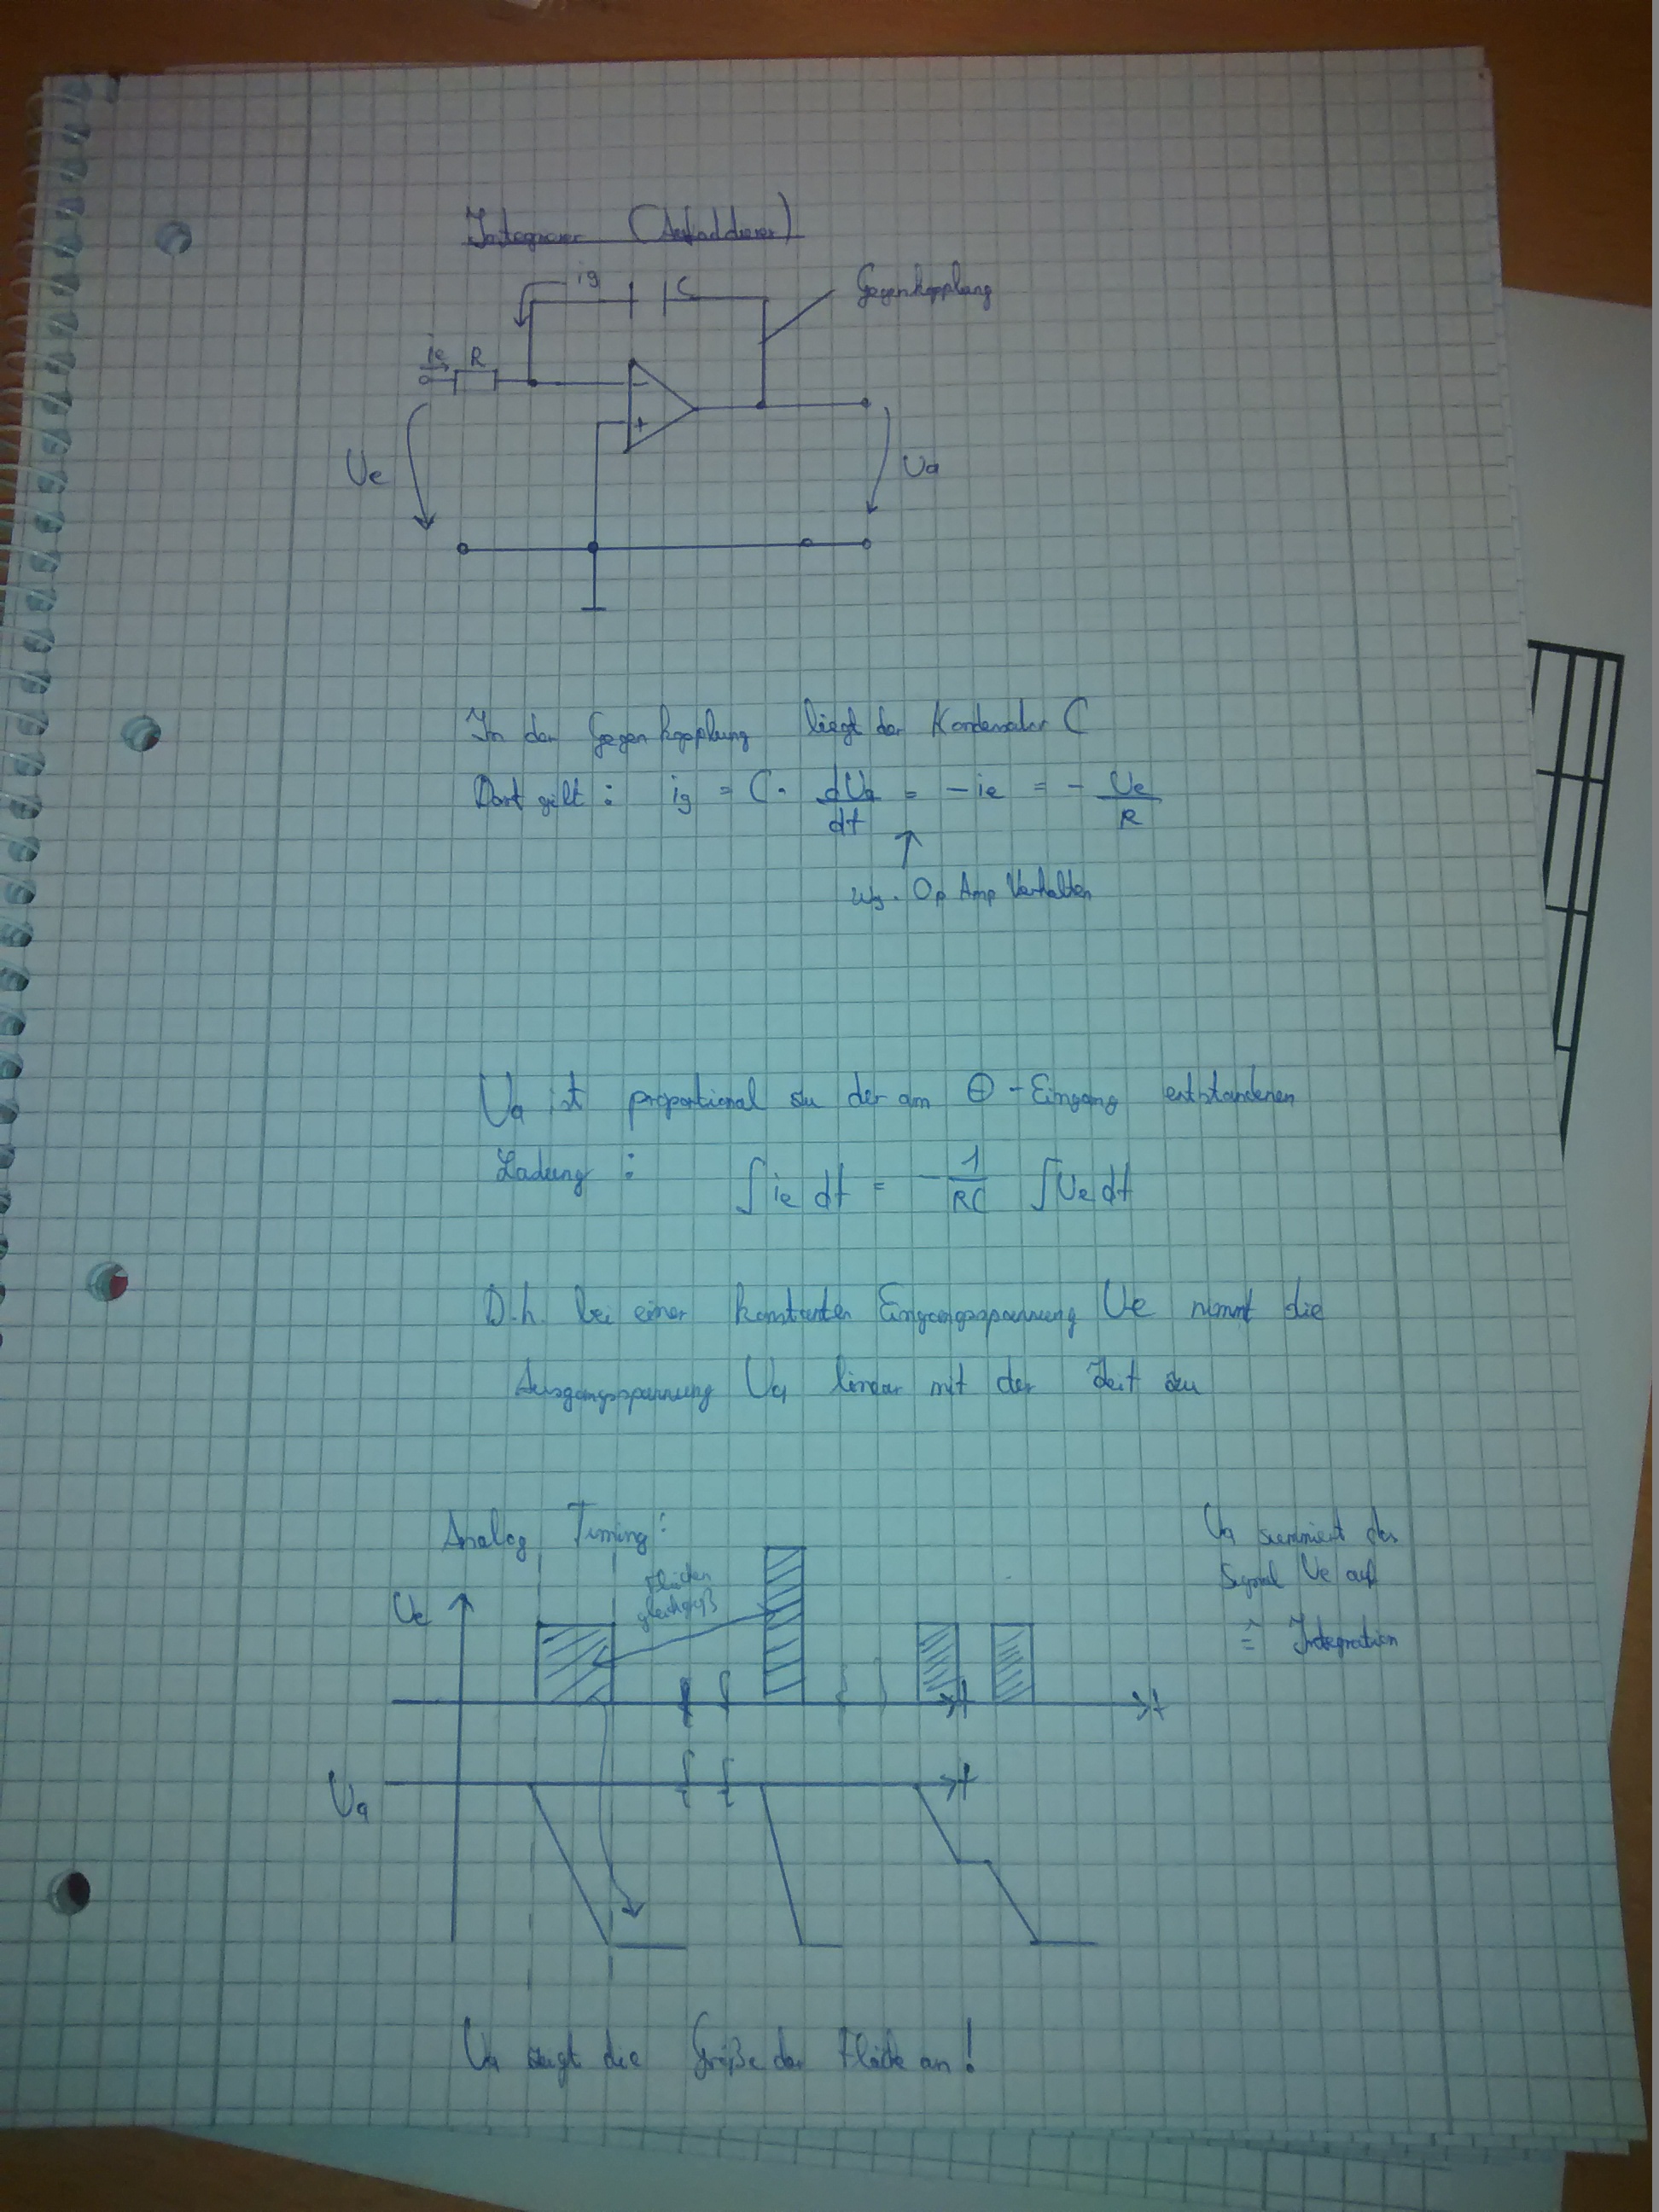 Integrierer (Aufaddierer)
ig C Gegenkopplung
ie R
-
+
Ue Ua
In der Gegenkopplung liegt der Kondensator C
Dort gilt : ig = C · dUa/dt = -ie = - Ue/R
↑
wg. Op Amp Verhalten
Ua ist proportional zu der am ⊖-Eingang entstandenen
Ladung : ∫ie dt = - 1/RC ∫Ue dt
D.h. bei einer konstanten Eingangsspannung Ue nimmt die
Ausgangsspannung Ua linear mit der Zeit zu
Analog Timing:
Ua summiert das
Signal Ue auf
≙ Integration
Flächen
gleichgroß
Ue
t t
t
Ua
Ua zeigt die Größe der Fläche an!